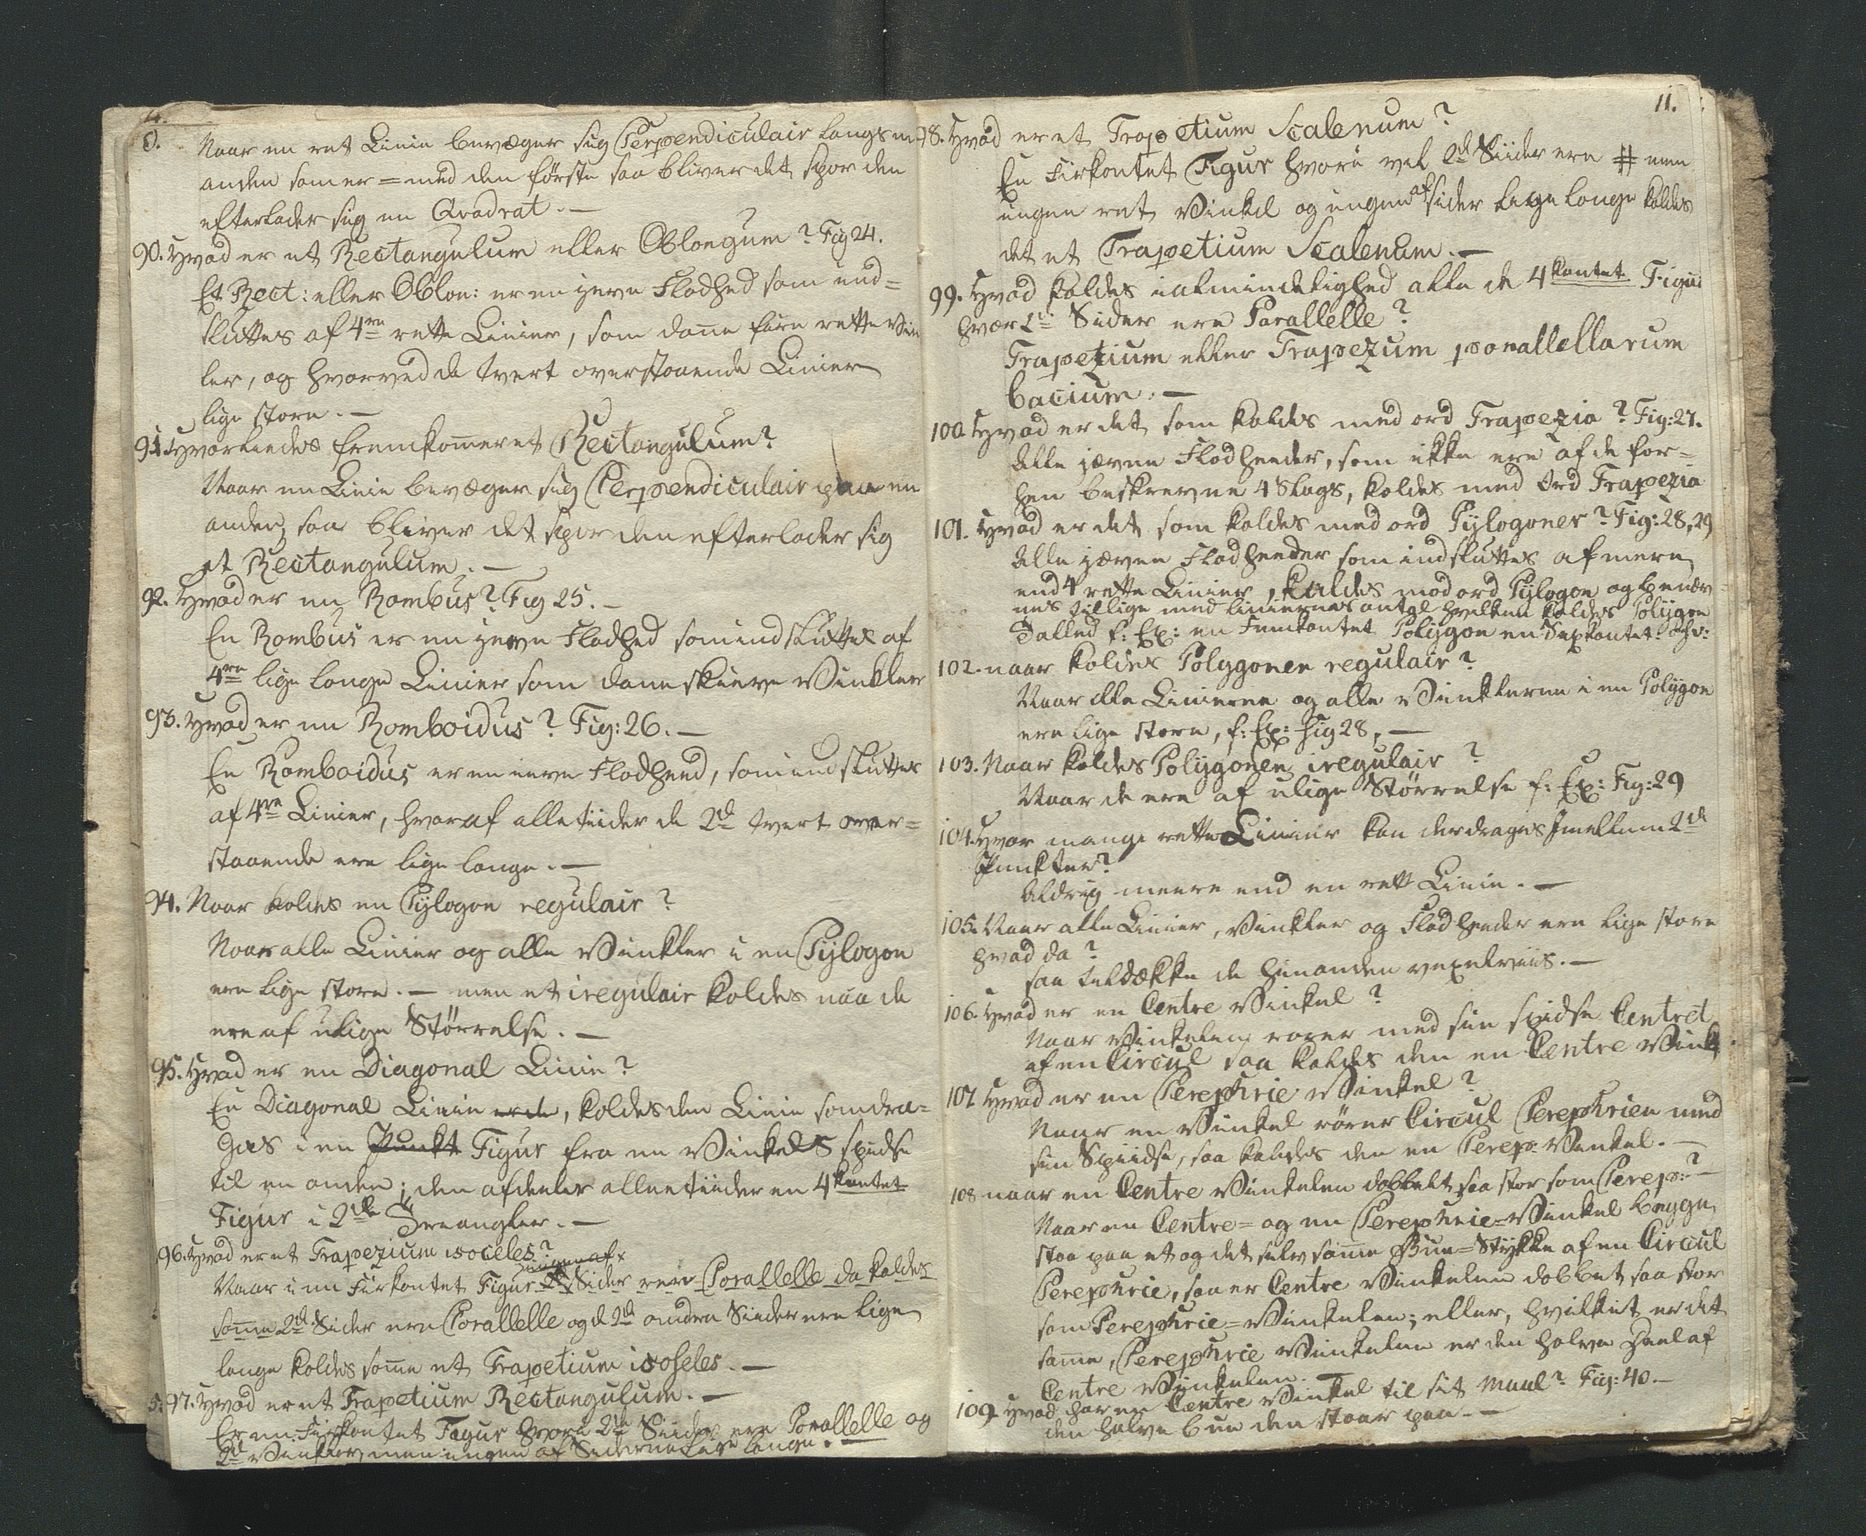 Naar en ret Linie bevæger sig Perpendiculair langs en
anden som er = med den første saa bliver det spor den
efterlader sig en Qvadrat. —
90. Hvad er et Rectangulum eller Oblongum? Fig 24.
Et Rect: eller Oblon: er en jevn Fladhed som ind=
sluttes af 4re rette Linier, som dane fire rette Vin
ler, og hvorved de tvert overstaaende Linier
lige store. —
91. Hvorledes fremkommer et Rectangulum?
Naar en Linie bevæger sig Perpendiculair paa en
anden, saa bliver det spor den efterlader sig
et Rectangulum. —
92. Hvad er en Rombus? Fig 25. —
En Rombus er en jevn Fladhed som indsluttes af
4re lige lange Linier som dane skieve Vinkler
93. Hvad er en Romboidus? Fig: 26. —
En Romboidus er en jevn Fladheed, som indsluttes
af 4re Linier, hvoraf alletiider de 2de tvert over=
staaende ere lige lange. —
94. Naar kaldes en Pylogon regulair?
Naar alle Linier og alle Vinkler i en Pylogon
ere lige store. — men et iregulair kaldes naa de
ere af ulige Størrelse. —
95. Hvad er en Diagonal Linie?
En Diagonal Linie er de, kaldes den Linie som dra=
ges i en Punkt Figur fra en Vinkels spidse
til en anden; den afdeeler alletiider en 4kantet
Figur i 2de Treangler. —
96. Hvad er et Trapezium isoceles?
Naar i en Firkantet Figur Sider ere Parallelle da kaldes
somme 2de Sider ere Parallelle og de 2de andre Siider ere lige
lange kaldes somme et Trapetium isoseles. —
97. Hvad er et Trapetium Rectangulum. —
Er en Firkantet Figur hvori 2de Siider ere Parallelle og
2de Vinkler, men ingen af Siderne lige lange. —
11.
98. Hvad er et Trapetium Scalenum?
En Firkantet Figur hvori vel 2de Siider ere # men
ingen ret Vinkel og ingen af sider lige lange kaldes
det et Trapetium Scalenum. —
99. Hvad kaldes i almindelighed alle de 4kantet Figur
hvor 2de Sider ere Parallelle?
Trapezium eller Trapezum parallellarum
bacium. —
100. Hvad er det som kaldes med ord Trapezia? Fig: 27.
Alle jævne Fladheeder, som ikke ere af de for=
hen beskrevne 4 Slags, kaldes med Ord Trapezia
101. Hvad er det som kaldes med ord Pylogoner? Fig: 28, 29
Alle jævne Fladheeder som indsluttes af mere
end 4 rette Linier, kaldes med ord Pylogon og benæv=
nes tillige med liniernes antal hvilken kaldes Polygon
Talled f: Ex: en Femkantet Polygon en Sexkantet
102. naar kaldes Polygonen regulair?
Naar alle Linierne og alle Vinklerne i en Polygon
ere lige store, f: Ex: Fig 28, —
103. Naar kaldes Polygonen iregulair?
Naar de ere af ulige Størrelse f: Ex: Fig: 29
104. Hvor mange rette Linier kan der drages Jmellem 2de
Punkter?
Aldrig meere end en rett Linie. —
105. Naar alle Linier, Vinkler og Fladheeder ere lige store
hvad da?
saa tildække de hinanden vexelviis. —
106. Hvad er en Centre Vinkel?
Naar Vinkelen rører med sin spidse Centret
af en Circul saa kaldes den en Centre Vink
107. Hvad er en Perephrie Vinkel?
Naar en Vinkel rører Circul Perephrien med
sin Spiidse, saa kaldes den en Pereph Vinkel. —
108 naar en Centre Vinkelen dobbelt saa stor som Pereph:? —
Naar en Centre= og en Perephrie=Vinkel begge
staa paa et og det selv samme Bue=Stykke af en Circul
Perephrie, saa er Centre Vinkelen dobbet saa stor
som Perephrie=Vinkelen; eller, hvilket er det
samme, Perephrie Vinkelen er den halve Deel af
Centre Vinkelen. —
109. Hvad har en Centre Vinkel til sit Maal? Fig: 40. —
den halve bue den staar paa. —